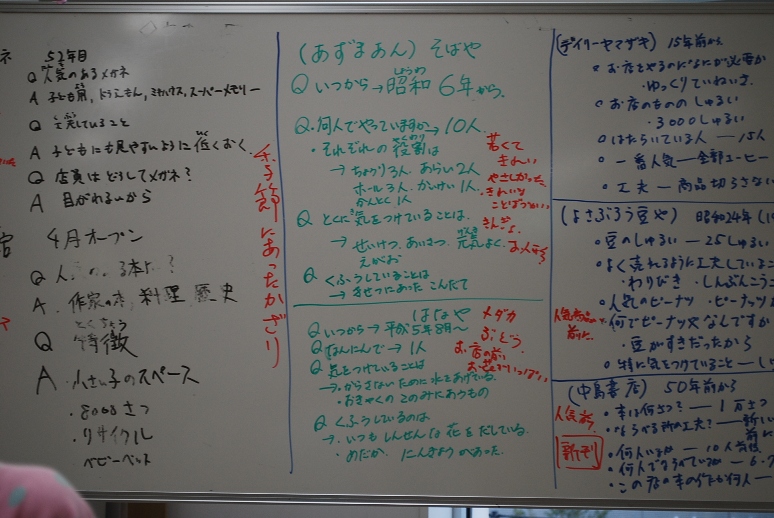 52年目
Q 人気のあるメガネ
A 子ども前, ドラえもん, ミキハウス, スーパーメモリー
Q 工夫していること
A 子どもにも見やすいように低くおく。
Q 店員はどうしてメガネ?
A 目がわるいから
4月オープン
Q 人 る本は?
A. 作家の本 料理 歴史
とくちょう
Q 特徴
A 小さい子のスペース
・8000さつ
・リサイクル
ベビーベット
季節にあったかざり
(あずまあん) そばや
しょうわ
Q いつから→昭和6年から。
Q. 何人でやっていますか→10人。
・それぞれの役割は
→ちょうり3人. あらい2人
ホール3人. かいけい1人
かんとく1人
Q とくに気をつけていることは.
→せいけつ. あいさつ. 元気よく.
えがお
Q くふうしていることは
→きせつにあった こんだて
若くて
きれい
やさしかった
きれいな
ことばづかい
はなや
Q いつから→平成5年8月〜
Q なんにんで→1人
Q 気をつけていることは
→からさないために水をあげている.
・おきゃくのこのみにあうもの
Q くふうしているのは
→いつもしんせんな花をだしている.
・めだか. にんぎょうがあった.
メダカ
ぶどう
お店の前に
(デイリーヤマザキ) 15年前から
○お店をやるのになにが必要か
・ゆっくりていねいさ.
○お店のものの しゅるい
・3000しゅるい
○はたらいている人 ― 15人
○一番人気 ― 金額コーヒー
○工夫 ― 商品切らさない
(よさぶろう豆や) 昭和24年
・豆のしゅるい ― 25しゅるい
・よく売れるように工夫しているこ
・わりびき ・しんぶんこうこ
・人気のピーナツ ・ピーナッツ
・何でピーナツやなんですか
・豆がすきだったから
・特に気をつけていること
(中島書店) 50年前から
・本は何さつ? ― 1万さつ
・ならべる所の工夫? ― 新しい
前に
・何人いるか ― 10人前後
・この店の本の作家が何人
人気
新刊